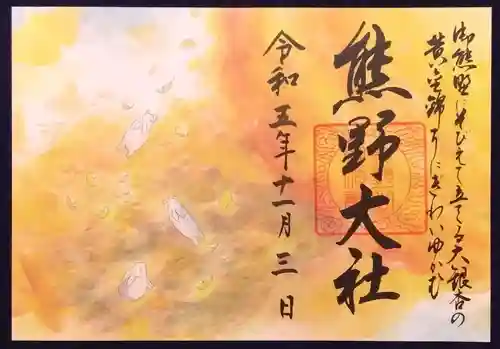 お熊野にそびえて立てる大銀杏の
黄金降りにきわいゆかむ
熊野大社
令和五年十一月三日